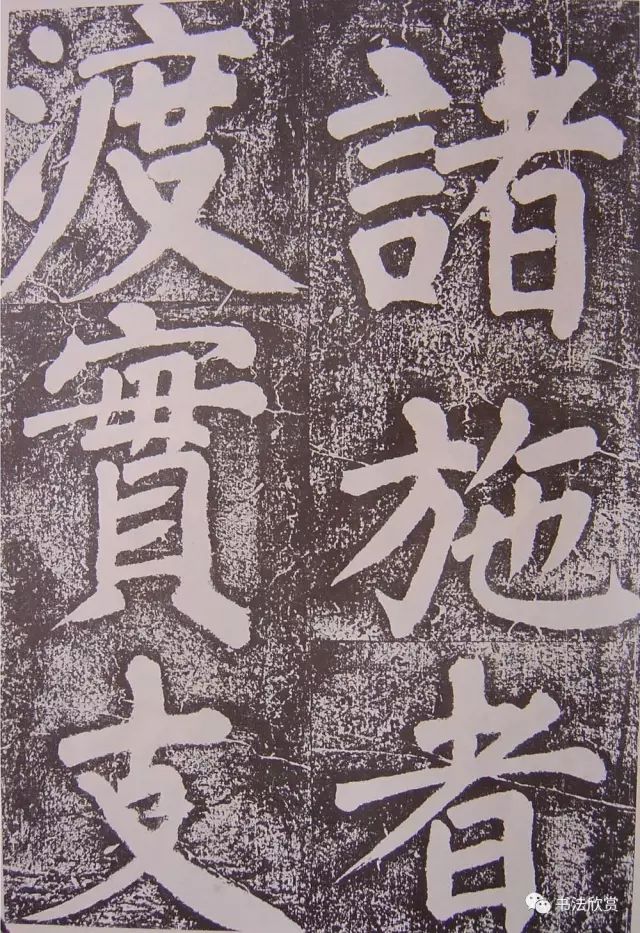 諸施者
渡實支
书法欣赏